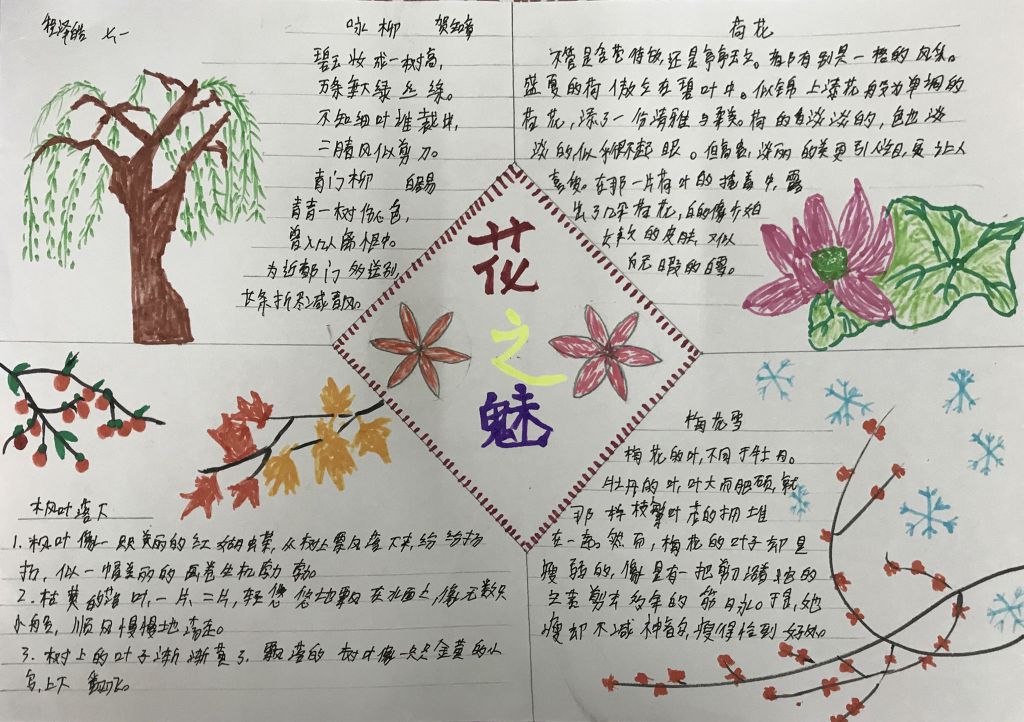 程泽皓 七一
咏柳 贺知章
碧玉妆成一树高,
万条垂下绿丝绦。
不知细叶谁裁出,
二月春风似剪刀。
青门柳 白居易
青青一树伤心色,
曾入几人离恨中。
为近都门多送别,
长条折尽减春风。
荷花
不管是含苞待放,还是亭亭玉立。都有别具一格的风采。
盛夏的荷傲立在碧叶中。似锦上添花般为单调的
荷花,添了一份清雅与柔美。荷的色淡淡的,色也淡
淡的似乎很不起眼。但高贵,淡丽的美更引人注目,更让人
喜爱。在那一片荷叶的掩盖中,露
出了几朵荷花,白的像少女
柔软的皮肤,又似
无暇的白雪。
花之魅
枫叶落下
1.枫叶像一只只美丽的红蝴蝶,从树上飘落下来,纷纷扬
扬,似一幅美丽的画卷生机勃勃。
2.枯黄的落叶,一片、二片,轻悠悠地飘在水面上,像无数只
小角色,顺风慢慢地荡走。
3.树上的叶子渐渐黄了,飘落的树叶像一只只金黄的小
鸟,上下翻飞。
梅花雪
梅花的叶,不同于牡丹。
牡丹的叶,叶大而肥硕,就
那样枝繁叶茂的拥堆
在一起。然而,梅花的叶子却是
瘦弱的,像是有一把剪刀
剪去多余的
瘦却不减神韵,瘦得恰到好处。